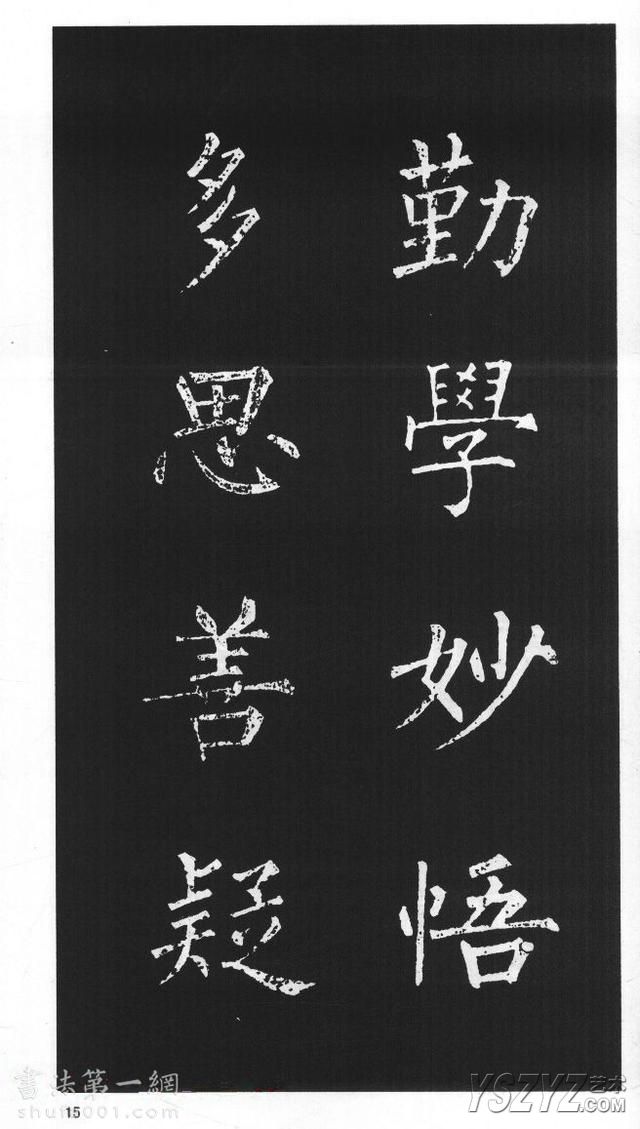 勤學妙悟
多思善疑
書法第一網
shufa001.com
15
YSZYZ艺术
.COM